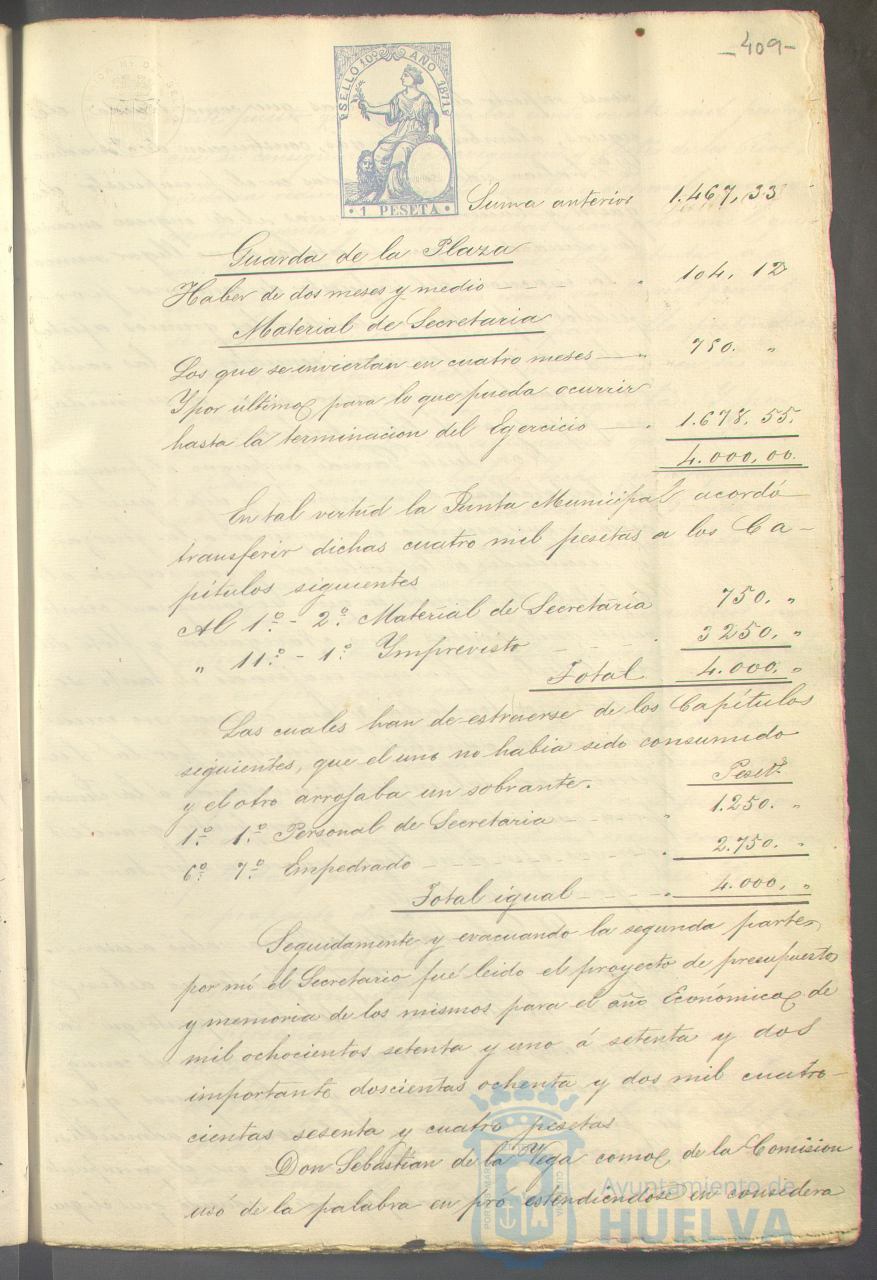 -409-
SELLO 10º AÑO 1871
1 PESETA
Suma anterior 1.467,33
Guarda de la Plaza
Haber de dos meses y medio - - - " 104, 12
Material de Secretaria
Los que se inviertan en cuatro meses — " 750. "
Y por último, para lo que pueda ocurrir
hasta la terminacion del Egercicio — " 1.678, 55.
4.000,00.
En tal virtud la Junta Municipal acordó
transferir dichas cuatro mil pesetas a los Ca-
pítulos siguientes
Al 1º - 2º Material de Secretaria 750. "
" 11º - 1º Ymprevisto - - - . 3250. "
Total 4.000. "
Las cuales han de estraerse de los Capítulos
siguientes, que el uno no habia sido consumido
y el otro arrojaba un sobrante. Peset.
1º 1º Personal de Secretaria - - - " 1.250. "
6º 7º Empedrado - - - " 2.750. "
Total igual - - - " 4.000, "
Seguidamente y evacuando la segunda parte,
por mí el Secretario fué leido el proyecto de presupuesto
y memoria de los mismos para el año Económico de
mil ochocientos setenta y uno á setenta y dos
importante doscientas ochenta y dos mil cuatro-
cientas sesenta y cuatro pesetas
Don Sebastian de la Vega como de la Comision
usó de la palabra en pró estendiendose en considera
Ayuntamiento de
HUELVA